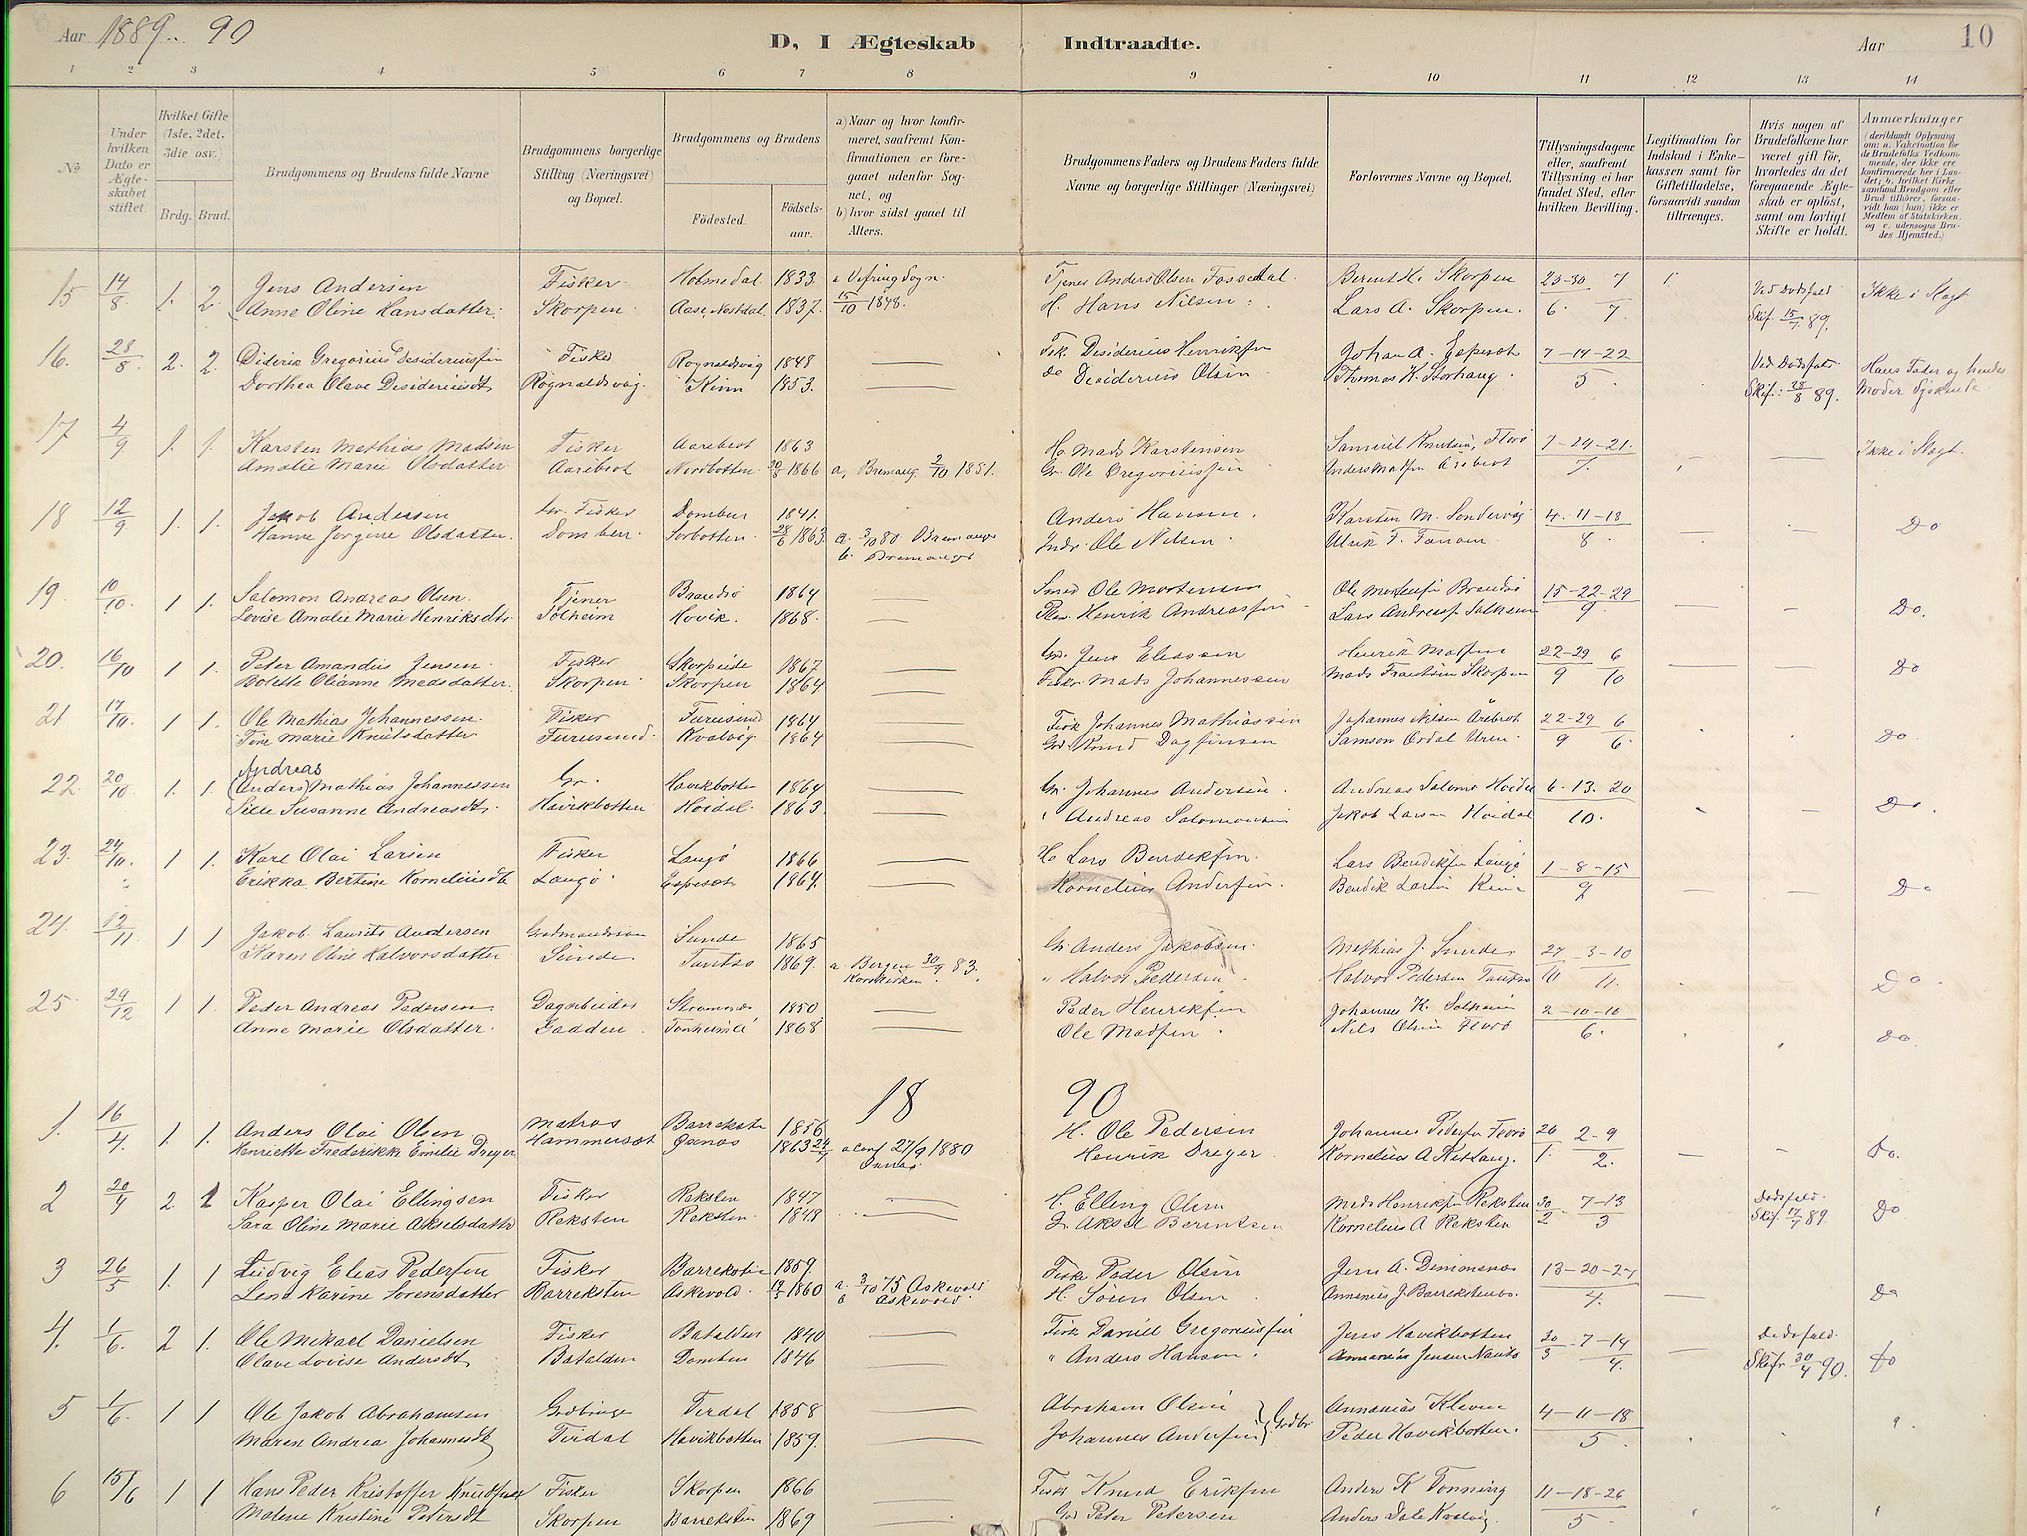 Aar 1889.. 90 D, I Ægteskab Indtraadte. Aar 10
1 2 3 4 5 6 7 8 9 10 11 12 13 14
No
Under hvilken Dato er Ægteskabet stiftet.
Hvilket Gifte (1ste, 2det, 3die osv.)
Brdg. Brud.
Brudgommens og Brudens fulde Navne
Brudgommens borgerlige Stilling (Næringsvei) og Bopæl.
Brudgommens og Brudens
Fødested. Fødselsaar.
a) Naar og hvor konfirmeret, saafremt Konfirmationen er foregaaet udenfor Sognet, og
b) hvor sidst gaaet til Alters.
Brudgommens Faders og Brudens Faders fulde Navne og borgerlige Stillinger (Næringsvei)
Forlovernes Navne og Bopæl.
Tillysningsdagene eller, saafremt Tillysning ei har fundet Sted, efter hvilken Bevilling.
Legitimation for Indskud i Enkekassen samt for Giftetilladelse, forsaavidt saadan tiltrænges.
Hvis nogen af Brudefolkene har været gift før, hvorledes da det foregaaende Ægteskab er opløst, samt om lovligt Skifte er holdt.
Anmærkninger
(deriblandt Oplysning om: a. Vakcination for de Brudefolks Vedkommende, der ikke ere konfirmerede her i Landet; b. hvilket Kirkesamfund Brudgom eller Brud tilhører, forsaavidt han (hun) ikke er Medlem af Statskirken, og c. udensogns Brudes Hjemsted.)
15 14/8 1. 2. Jens Andersen Fisker Holmedal 1833. a Vefring Sogn. Tjener Anders Olsen Fossedal. Berent H. Skorpen 23-30 7 Ved Dødsfald Ikke i Slægt
Anne Oline Hansdatter. Skorpen. Aase, Nordal. 1837. 15/10 1848. H. Hans Nilsen Lars A. Skorpen. 6. 7. Skif. 89.
16. 28/8 2. 2. Diderik Gregorius Desideriussen Fisker Rognaldsvåg 1848 Fisk. Desiderius Henriksen Johan A. Espeset 7-14-22 Ved Dødsfald Hans Fader og hendes
Dorthea Olave Desideriusdt Rognaldsvåg. Kinn 1853. do Desiderius Olsen Thomas K. Storhaug. 5. Skif. 28/8 89. Moder Sødskende
17 4/9 1. 1. Karsten Mathias Madsen Fisker Aarebrot 1863 H. Mads Karstensen Samuel Knudsen, Florø 7-14-21. Ikke i Slægt.
Amalie Marie Olsdatter Aarebrot Nordbotten 1866 a, Bremang. 2/10 1881. Gr. Ole Gregoriussen Anders Madsen Årebrot
18 12/9 1. 1. Jakob Andersen Fisker Domben 1841. Anders Hansen. Karsten M. Sondervåg 4-11-18 Do
Hanne Jørgine Olsdatter. Domben. Sorbotten. 28/6 1863. a. 3/10 80 Bremanger Indr. Ole Nilsen. Ulrik F. 8.
b. Bremanger
19. 10/10. 1 1. Salomon Andreas Olsen. Tjener Brandsø 1864 Smed Ole Mortensen Ole Mortensen Brandsø 15-22-29 Do.
Lovise Amalie Marie Henriksdtr. Solheim Hovik. 1868. Henrik Andreassen Lars Andreasf. Solheim 9.
20. 16/10 1 1. Peter Amandus Jensen. Fisker Skorpeide 1867 Gr. Jens Eliassen Henrik Madsen 22-29 6 Do
Bolette Olianne Madsdatter. Skorpen Skorpen 1864 Fisker Mads Johannessen Mads Skorpen 9 10
21 17/10. 1 1. Ole Mathias Johannessen. Fisker Furusund 1864 Fisk Johannes Mathiassen Johannes Nilsen Årebrot 22-29 6 Do
Tine Marie Knudsdatter. Furusund. Kvalvig. 1864 Knud Dagfinsen Samson Uren. 9 6.
Andreas
22. 20/10. 1. 1. (Anders) Mathias Johannessen Gr. Havikbotten 1864 Gr. Johannes Andersen. Andreas Saloms Høidal 6-13-20 Do.
Susanne Andreasdt. Havikbotten Høidal. 1863. Andreas Salomonsen Jakob Larsen Høidal 10.
23. 24/10. 1 1. Karl Olai Larsen Fisker Langø 1866 H. Lars Bendiksen. Lars Bendiksen Langø 1-8-15
Erikka Bertine Korneliusdt. Langø. Espeset 1864. Kornelius Andersen. Bendik Larsen Kinn 9 Do
24. 12/11. 1 1 Jakob Laurits Andersen Sunde 1865 Gr Anders Jakobsen. Mathias J. Sunde 27 -3-10
Karen Oline Halvorsdatter. Sunde 1869. a. Bergen 30/9 83. Halvor Pedersen. Halvor Pedersen 10 11. Do.
Korskirken.
25. 29/12 1 1. Peder Andreas Pedersen Dagarbeider 1850 Peder Henriksen Johannes K. Solheim 2-10-16
Anne Marie Olsdatter. Gadden. 1868 Ole Madsen. Nils Olsen Florø 6. Do.
18 90
1. 16/4. 1. 1. Anders Olai Olsen Matros Barreksten 1856 H. Ole Pedersen Johannes Pedersen Florø 26 2-9 Do.
Henriette Frederikke Emilie Dreyer Hammerset 1863 a Conf 27/9 1880 Henrik Dreyer. Kornelius A. 1. 2.
2 20/4 2. 1 Kasper Olai Ellingsen Fisker Reksten 1847 H. Elling Olsen Mads Henriksen Reksten 30 7-13 Dødsfald. Do
Sara Oline Marie Akselsdatter Reksten Reksten. 1848 Aksel Berentsen Kornelius A Reksten 2 3 Skif. 89.
3 26/5 1. 1 Ludvig Elias Pedersen Fisker Barreksten 1859. Fisker Peder Olsen Jens A. 13-20-27
Lena Karine Sorensdatter Barreksten Askevold. 1860 a. 3/10 75 Askevold H. Søren Olsen. Annanias J Barrekstenbo. 4. Do
b Askevold.
4. 1/6. 2 1. Ole Mikael Danielsen Fisker Batalden 1840 Fisk Daniel Gregoriussen Jens Havikbotten 30 -7-14 Dødsfald.
Olave Lovise Andersdt. Batalden Domben 1846 Anders Hansen. Annanias Jensen 3 4. Skifr 30/4 90. Do
5 1/6. 1 1 Ole Jakob Abrahamsen Grdbruger Terdal 1858 Abraham Olsen } Grdbr. Annanias Kleven 4-11-18
Maren Andrea Johannesdt. Terdal Havikbotten 1859. Johannes Andersen Peder Havikbotten. 5.
6 15/6 1 1 Hans Peder Kristoffer Knudsen Fisker Skorpen 1866 Fisk Knud Eriksen Anders K Tonning 11-18-26
Malene Kristine Petersdt Skorpen Barreksten 1869 Grd Peter Petersen Anders Dale Kvalvig. 5.